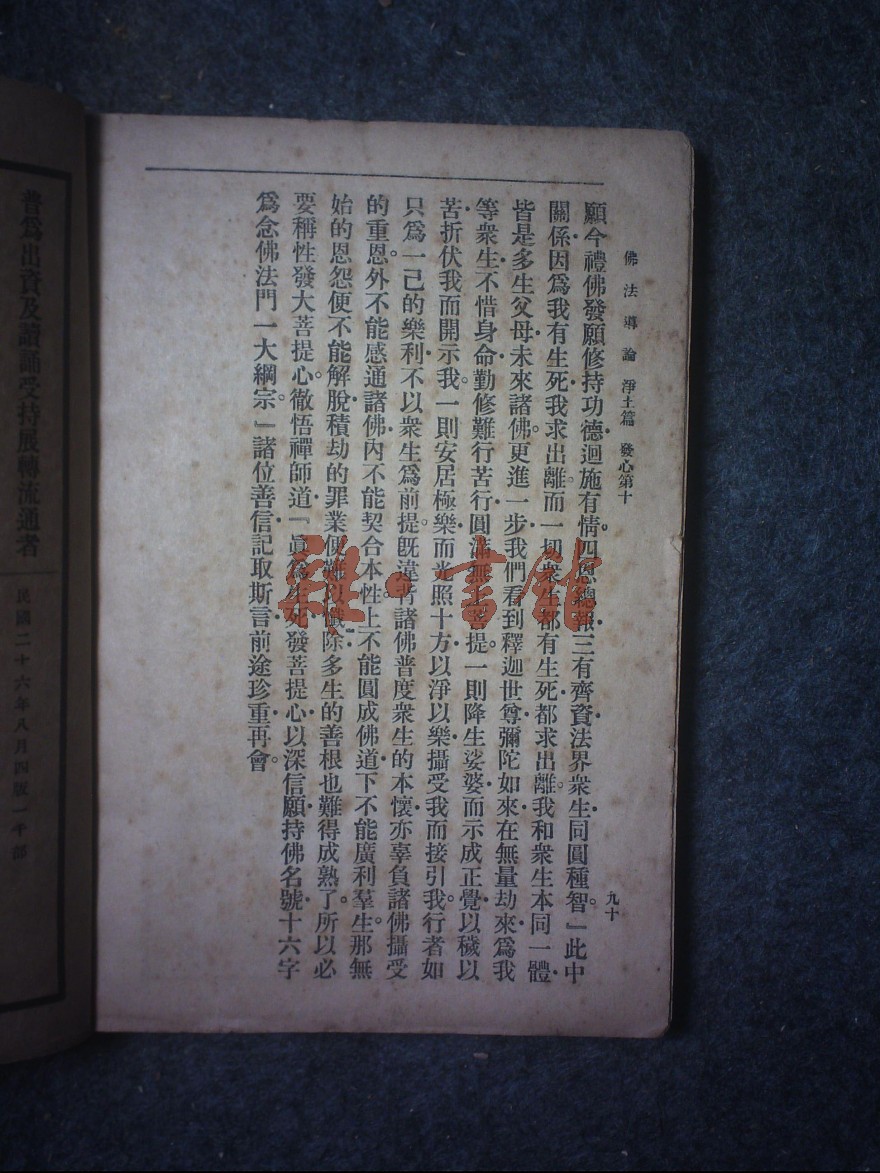 佛法導論 淨土篇 發心第十
九十
願今禮佛發願修持功德迴施有情。四恩總報三有齊資法界衆生同圓種智。』此中
關係因爲我有生死我求出離而一切衆生都有生死都求出離。我和衆生本同一體
皆是多生父母未來諸佛。更進一步我們看到釋迦世尊彌陀如來在無量劫來爲我
等衆生不惜身命勤修難行苦行圓滿無上菩提。一則降生娑婆而示成正覺以穢以
苦折伏我而開示我。一則安居極樂而光照十方以淨以樂攝受我而接引我。行者如
只爲一己的樂利不以衆生爲前提。旣違背諸佛普度衆生的本懷亦辜負諸佛攝受
的重恩外不能感通諸佛內不能契合本性上不能圓成佛道下不能廣利羣生。那無
始的恩怨便不能解脫積劫的罪業便難以懺除多生的善根也難得成熟了。所以必
要稱性發大菩提心。徹悟禪師道『眞爲生死發菩提心以深信願持佛名號十六字
爲念佛法門一大綱宗。』諸位善信記取斯言前途珍重再會。
普爲出資及讀誦受持展轉流通者
民國二十六年八月四版一千部
雜·書館